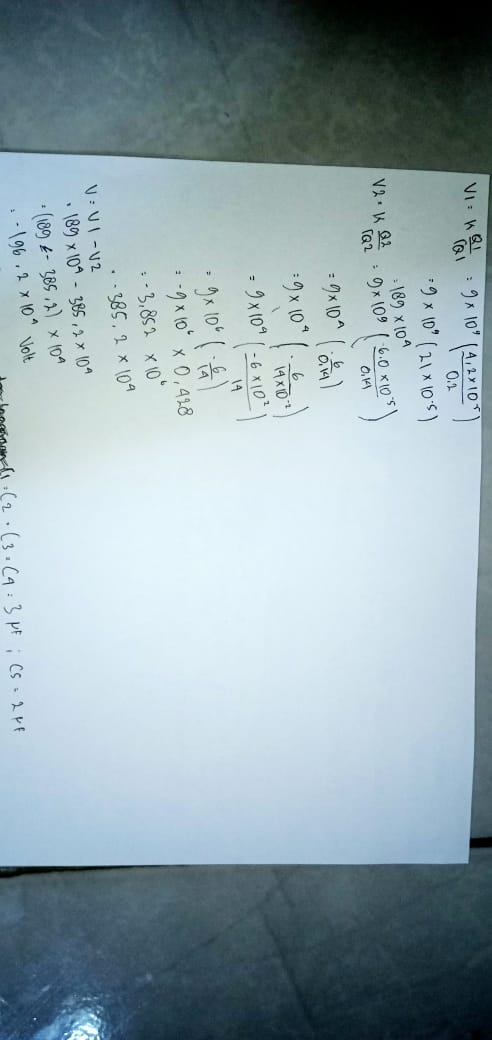 V1 = K Q1/rQ1 = 9 x 10⁹ (4,2 x 10⁻⁵/0.2)
= 9 x 10⁹ (21 x 10⁻⁵)
= 189 x 10⁴
V2 = K Q2/rQ2 = 9 x 10⁹ (-6.0 x 10⁻⁵/0,14)
= 9 x 10⁴ (-6/0,14)
= 9 x 10⁴ (-6/14 x 10⁻²)
= 9 x 10⁴ (-6 x 10²/14)
= 9 x 10⁶ (-6/14)
= -9 x 10⁶ x 0,428
= -3,852 x 10⁶
= -385,2 x 10⁴
V = V1 - V2
= 189 x 10⁴ - 385,2 x 10⁴
= (189 - 385,2) x 10⁴
= -196,2 x 10⁴ Volt
C1 = C2 = C3 = C4 = 3 μF ; C5 = 2 μF